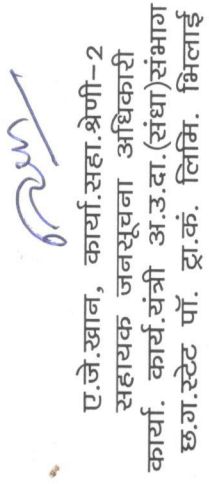 ए.जे.खान, कार्या.सहा.श्रेणी-2
सहायक जनसूचना अधिकारी
कार्या. कार्य.यंत्री अ.उ.दा.(संधा)संभाग
छ.ग.स्टेट पॉ. ट्रा.कं. लिमि. भिलाई